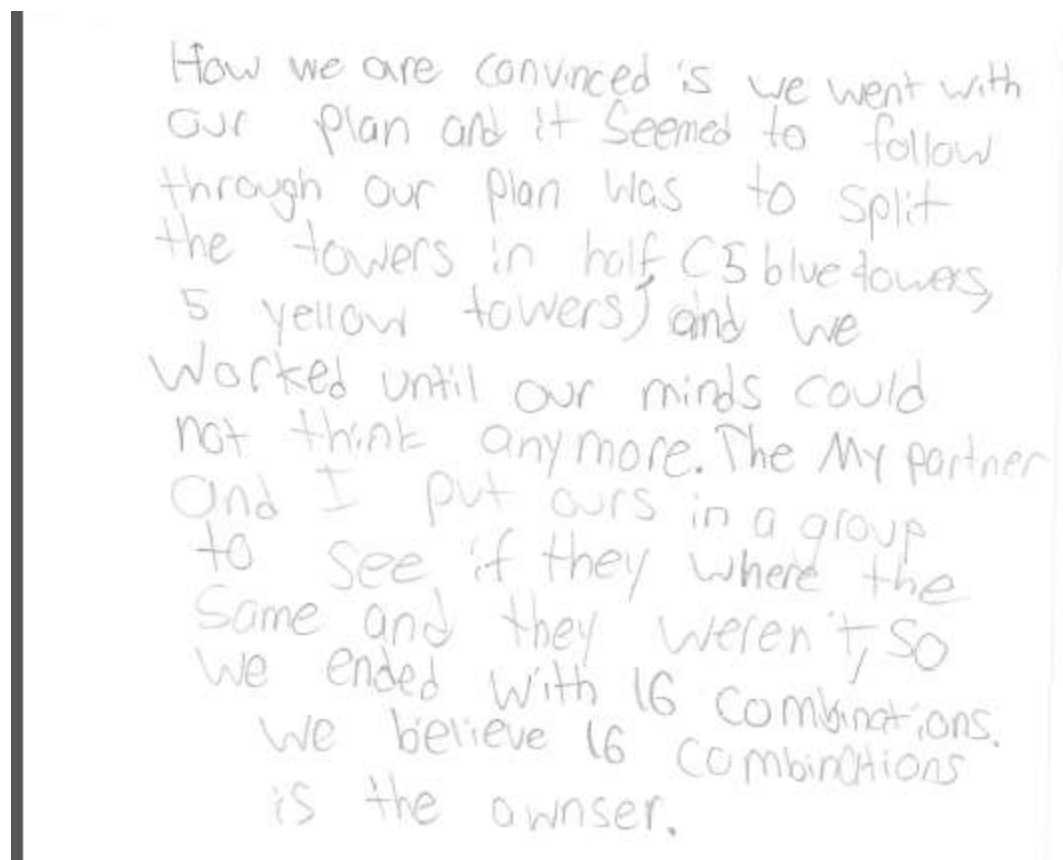 How we are convinced is we went with
our plan and it seemed to follow
through our plan was to split
the towers in half (5 blue towers,
5 yellow towers) and we
worked until our minds could
not think anymore. The My partner
and I put ours in a group
to see if they where the
same and they weren't, so
we ended with 16 combinations.
we believe 16 combinations
is the awnser.